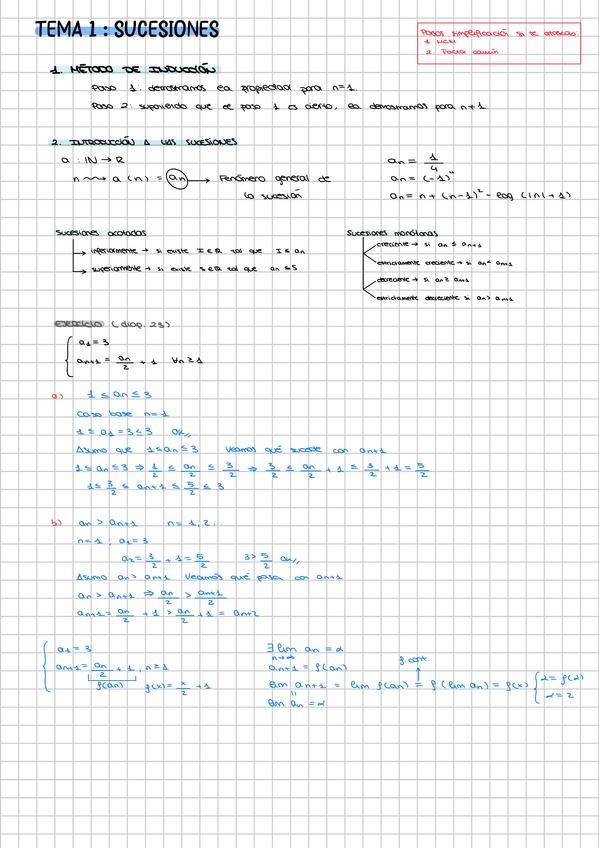 TEMA 1 : SUCESIONES
Pasos simplificación si te atascas
1 MCM
2 Factor común
1. MÉTODO DE INDUCCIÓN
Paso 1: demostramos la propiedad para n=1
Paso 2: suponiendo que el paso 1 es cierto, la demostramos para n+1
2. INTRODUCCIÓN A LAS SUCESIONES
a : IN → R
n ⇝ a (n) = an → Fenómeno general de
la sucesión
an = 1/4
an = (-1)^n
an = n + (n-1)² - log (|n|+1)
Sucesiones acotadas
inferiormente → si existe I∈R tal que I ≤ an
superiormente → si existe S∈R tal que an ≤ S
Sucesiones monótonas
creciente → si an ≤ an+1
estrictamente creciente → si an < an+1
decreciente → si an ≥ an+1
estrictamente decreciente si an > an+1
ejercicio (diap. 23)
a1 = 3
an+1 = an/2 + 1 ∀n ≥ 1
a) 1 ≤ an ≤ 3
Caso base n=1
1 ≤ a1 = 3 ≤ 3 ok//
Asumo que 1≤an≤3 Veamos qué sucede con an+1
1 ≤ an ≤ 3 ⇒ 1/2 ≤ an/2 ≤ 3/2 ⇒ 3/2 ≤ an/2 + 1 ≤ 3/2 + 1 = 5/2
1 ≤ 3/2 ≤ an+1 ≤ 5/2 ≤ 3
b) an > an+1 n = 1, 2...
n=1, a1 = 3
a2 = 3/2 + 1 = 5/2 3 > 5/2 ok//
Asumo an > an+1 Veamos qué pasa con an+1
an > an+1 ⇒ an/2 > an+1/2
an+1 = an/2 + 1 > an+1/2 + 1 = an+2
a1 = 3
an+1 = an/2 + 1, n ≥ 1
f(an) f(x) = x/2 + 1
∃ lim an = α
n→∞
an+1 = f(an)
f cont.
lim an+1 = lim f(an) = f (lim an) = f(α)
α = f(α)
α = 2
lim an = α